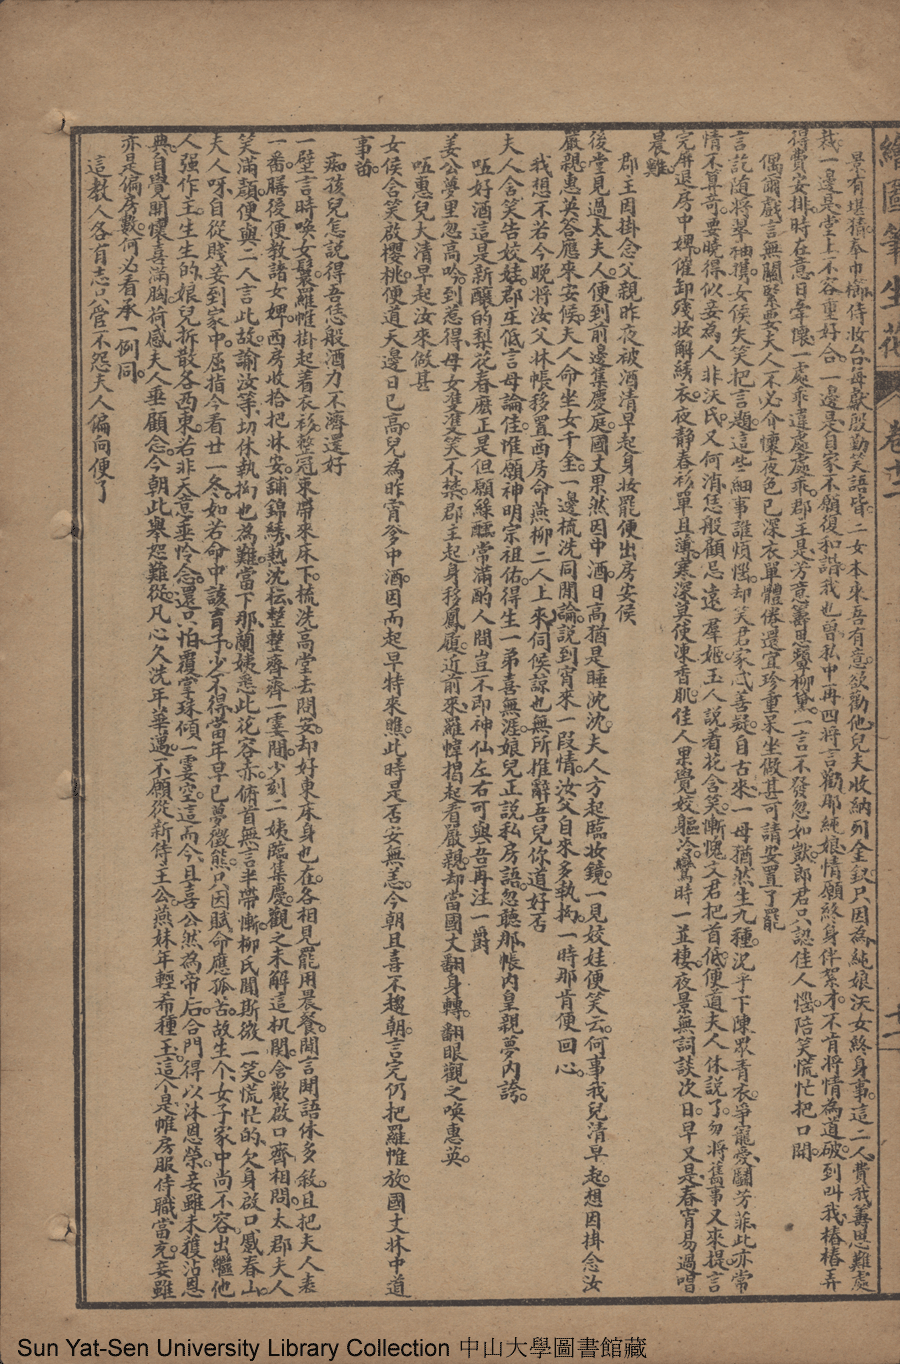 繪圖筆生花 卷十二 十二
景有堪猜奉巾櫛侍妝台每獻殷勤笑語皆二女本來吾有意欲勸他兒夫收納列金釵只因為純娘沃女終身事這二人費我籌思難處
裁一邊是堂上不容重好合一邊是自家不願復和諧我也曾私中再四將言勸那純娘情願終身伴絮才不肯將情為道破到叫我樁樁弄
得費安排時在意日牽懷一處乖違處處乖郡王是芳意籌思顰柳黛一言不發忽如獃郎君只認佳人惱陪笑慌忙把口開
偶爾戲言無關緊要夫人不必介懷夜色已深衣單體倦還宜珍重呆坐做甚可請安置了罷
言訖隨將翠袖攜女侯失笑把言題這些細事誰煩惱却笑君家忒善疑自古來一母猶然生九種況乎下陳眾青衣爭寵愛鬬芳菲此亦常
情不算奇要曉得似妾為人非沃氏又何消恁般顧忌遠羣姬玉人說着花含笑慚愧文君把首低便道夫人休說了勿將舊事又來提言
完屏退房中婢催卸殘妝解綉衣夜靜春衫單且薄寒深莫使凍香肌佳人果覺姣軀冷鸞時一並棲夜景無詞談次日早又是春宵易過唱
晨雞
郡王因掛念父親昨夜被酒清早起身妝罷便出房安候
後堂見過太夫人便到前邊集慶庭國丈果然因中酒日高猶是睡沈沈夫人方起臨妝鏡一見姣娃便笑云何事我兒清早起想因掛念汝
嚴親惠英答應來安候夫人命坐女千金一邊梳洗同閒論說到宵來一段情汝父自來多執拗一時那肯便回心
我想不若今晚將汝父牀帳移置西房命燕柳二人上來伺侯諒也無所推辭吾兒你道好否
夫人含笑告姣娃郡王低言母論佳惟願神明宗祖佑得生一弟喜無涯娘兒正說私房語忽聽那帳內皇親夢內誇
咂好酒這是新釀的梨花春麽正是但願綠醽常滿酌人間豈不即神仙左右可與吾再注一爵
姜公夢里忽高吟到惹得母女雙雙笑不禁郡王起身移鳳履近前來羅幃揭起看嚴親却當國丈翻身轉翻眼觀之喚惠英
咂惠兒大清早起汝來做甚
女侯含笑啟櫻桃便道天邊日已高兒為昨霄爹中酒因而起早特來瞧此時是否安無恙今朝且喜不趨朝言完仍把羅帷放國丈牀中道
事苗
痴孩兒怎說得吾恁般酒力不濟還好
一壁言時喚女鬟羅帷掛起着衣衫整冠束帶來床下梳洗高堂去問安却好東床身也在各相見罷用晨餐閒言閒語休多敘且把夫人表
一番膳後便教諸女婢西房收拾把牀安鋪錦綉熱沈枟整整齊齊一霎間少刻二姨臨集慶觀之未解這机関含歡啟口齊相問太郡夫人
笑滿顏便與二人言此故諭汝等切休執拗也為難當下那蘭姨悉此花容赤俯首無言半帶慚柳氏聞斯微一笑慌忙的欠身啟口蹙春山
夫人呀自從賤妾到家中屈指今看廿一冬如若命中該育子少不得當年早已夢徵熊只因賦命應孤苦故生個女子家中尚不容出繼他
人强作主生生的娘兒拆散各西東若非天意垂怜念還只怕覆掌珠傾一霎空這而今且喜公然為帝后合門得以沐恩榮妾雖未獲沾恩
典自覺開懷喜滿胸荷感夫人垂顧念今朝此舉恕難從凡心久洗年華邁不願從新侍王公燕妹年輕希種玉這個是帷房服侍職當充妾雖
亦是偏房數何必看承一例同
這教人各有志只管不怨夫人偏向便了
Sun Yat-Sen University Library Collection 中山大學圖書館藏